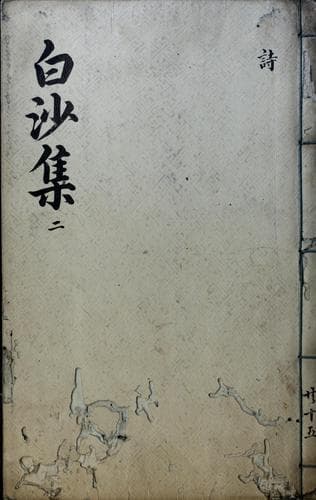 白沙集 二
詩
共十五